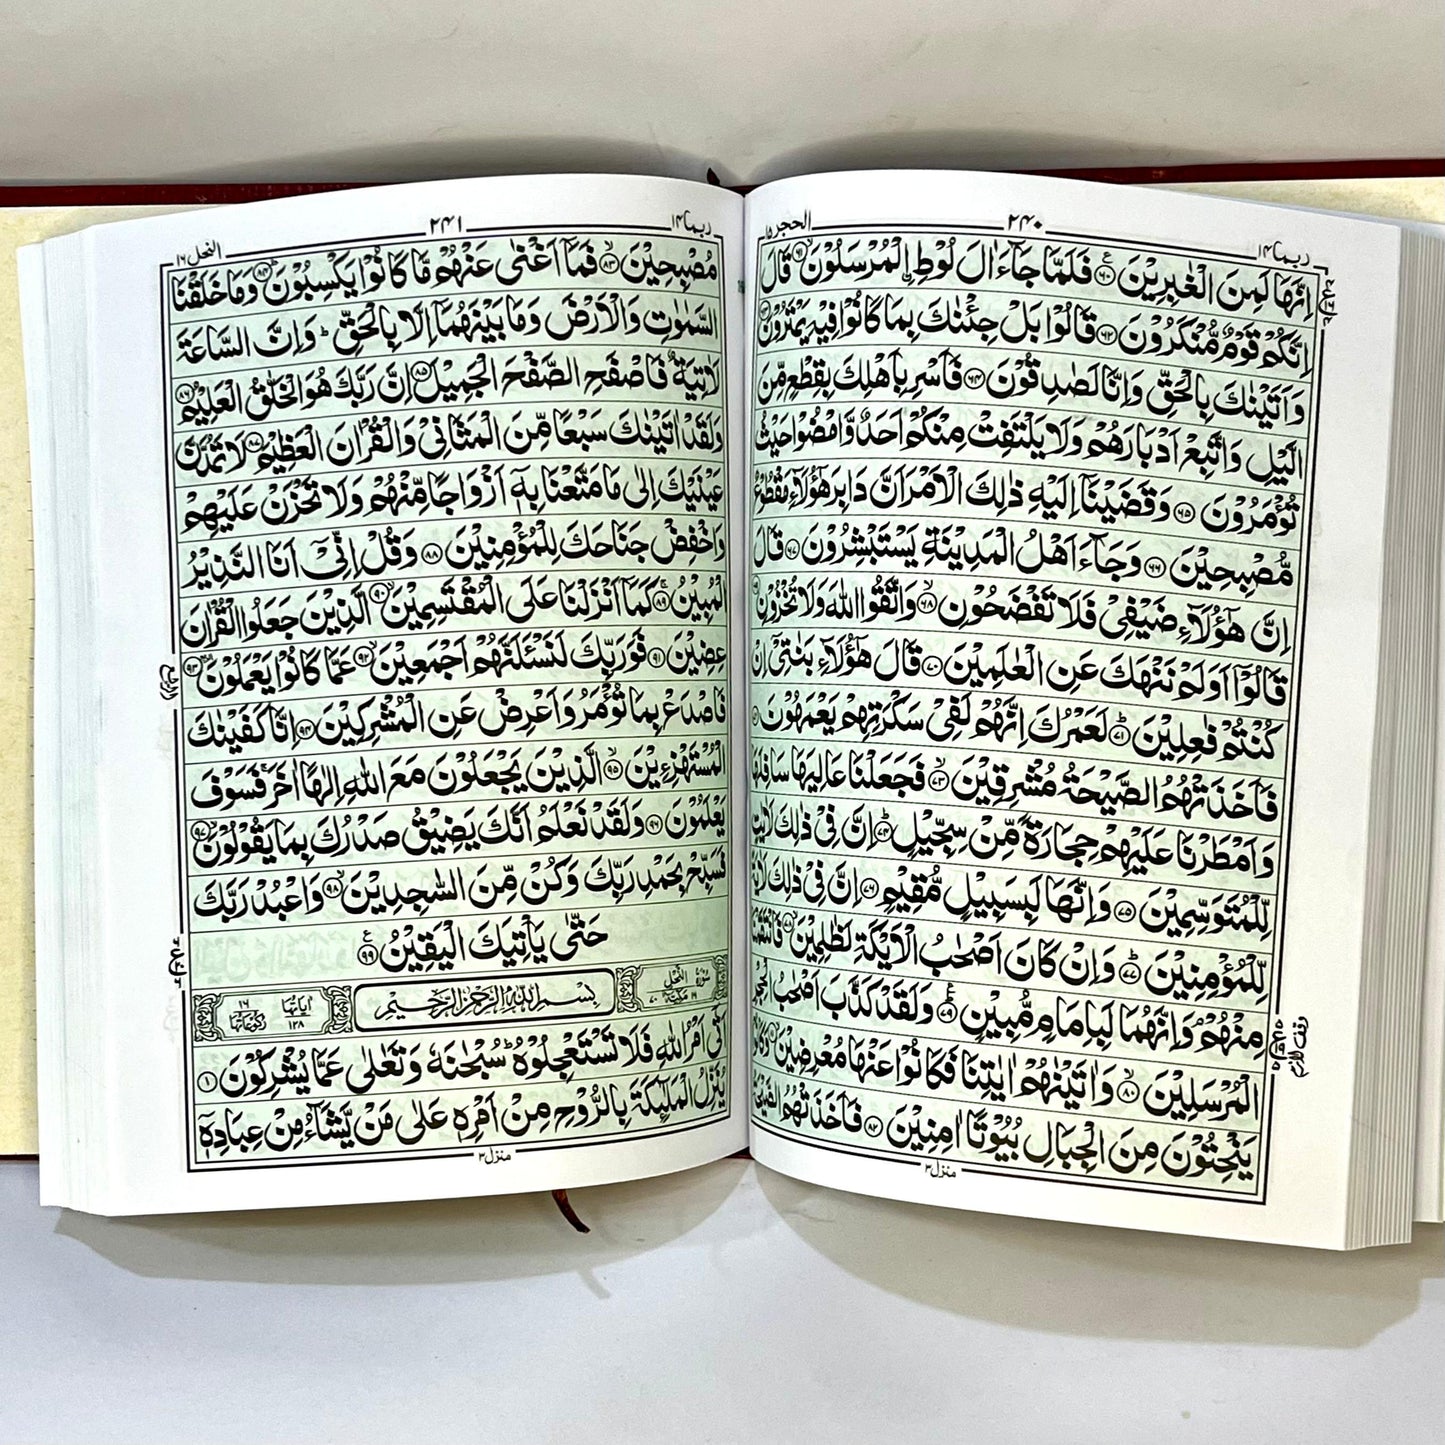 ربما ۱۴
۲۴۰
الحجر ۱۵
اِنَّهَا لَمِنَ الْغٰبِرِیْنَ ﴿۶۰﴾ فَلَمَّا جَآءَ اٰلَ لُوْطِ ِۨ الْمُرْسَلُوْنَ ﴿۶۱﴾ قَالَ
اِنَّكُمْ قَوْمٌ مُّنْكَرُوْنَ ﴿۶۲﴾ قَالُوْا بَلْ جِئْنٰكَ بِمَا كَانُوْا فِیْهِ یَمْتَرُوْنَ ﴿۶۳﴾
وَاَتَیْنٰكَ بِالْحَقِّ وَاِنَّا لَصٰدِقُوْنَ ﴿۶۴﴾ فَاَسْرِ بِاَهْلِكَ بِقِطْعٍ مِّنَ
الَّیْلِ وَاتَّبِعْ اَدْبَارَهُمْ وَلَا یَلْتَفِتْ مِنْكُمْ اَحَدٌ وَّامْضُوْا حَیْثُ
تُؤْمَرُوْنَ ﴿۶۵﴾ وَقَضَیْنَاۤ اِلَیْهِ ذٰلِكَ الْاَمْرَ اَنَّ دَابِرَ هٰۤؤُلَآءِ مَقْطُوْعٌ
مُّصْبِحِیْنَ ﴿۶۶﴾ وَجَآءَ اَهْلُ الْمَدِیْنَةِ یَسْتَبْشِرُوْنَ ﴿۶۷﴾ قَالَ
اِنَّ هٰۤؤُلَآءِ ضَیْفِیْ فَلَا تَفْضَحُوْنِ ﴿۶۸﴾ وَاتَّقُوا اللّٰهَ وَلَا تُخْزُوْنِ ﴿۶۹﴾
قَالُوْۤا اَوَلَمْ نَنْهَكَ عَنِ الْعٰلَمِیْنَ ﴿۷۰﴾ قَالَ هٰۤؤُلَآءِ بَنٰتِیْۤ اِنْ
كُنْتُمْ فٰعِلِیْنَ ﴿۷۱﴾ لَعَمْرُكَ اِنَّهُمْ لَفِیْ سَكْرَتِهِمْ یَعْمَهُوْنَ
فَاَخَذَتْهُمُ الصَّیْحَةُ مُشْرِقِیْنَ ﴿۷۳﴾ فَجَعَلْنَا عَالِیَهَا سَافِلَهَا
وَاَمْطَرْنَا عَلَیْهِمْ حِجَارَةً مِّنْ سِجِّیْلٍ ﴿۷۴﴾ اِنَّ فِیْ ذٰلِكَ لَاٰیٰتٍ
لِّلْمُتَوَسِّمِیْنَ ﴿۷۵﴾ وَاِنَّهَا لَبِسَبِیْلٍ مُّقِیْمٍ ﴿۷۶﴾ اِنَّ فِیْ ذٰلِكَ لَاٰیَةً
لِّلْمُؤْمِنِیْنَ ﴿۷۷﴾ وَاِنْ كَانَ اَصْحٰبُ الْاَیْكَةِ لَظٰلِمِیْنَ ﴿۷۸﴾ فَانْتَقَمْنَا
مِنْهُمْ وَاِنَّهُمَا لَبِاِمَامٍ مُّبِیْنٍ ﴿۷۹﴾ وَلَقَدْ كَذَّبَ اَصْحٰبُ الْحِجْرِ
الْمُرْسَلِیْنَ ﴿۸۰﴾ وَاٰتَیْنٰهُمْ اٰیٰتِنَا فَكَانُوْا عَنْهَا مُعْرِضِیْنَ ﴿۸۱﴾ وَكَانُوْا
یَنْحِتُوْنَ مِنَ الْجِبَالِ بُیُوْتًا اٰمِنِیْنَ ﴿۸۲﴾ فَاَخَذَتْهُمُ الصَّیْحَةُ
منزل ۳
وقف لازم
ربما ۱۴
۲۴۱
النحل ۱۶
مُصْبِحِیْنَ ﴿۸۳﴾ فَمَاۤ اَغْنٰی عَنْهُمْ مَّا كَانُوْا یَكْسِبُوْنَ ﴿۸۴﴾ وَمَا خَلَقْنَا
السَّمٰوٰتِ وَالْاَرْضَ وَمَا بَیْنَهُمَاۤ اِلَّا بِالْحَقِّ ؕ وَاِنَّ السَّاعَةَ
لَاٰتِیَةٌ فَاصْفَحِ الصَّفْحَ الْجَمِیْلَ ﴿۸۵﴾ اِنَّ رَبَّكَ هُوَ الْخَلّٰقُ الْعَلِیْمُ ﴿۸۶﴾
وَلَقَدْ اٰتَیْنٰكَ سَبْعًا مِّنَ الْمَثَانِیْ وَالْقُرْاٰنَ الْعَظِیْمَ ﴿۸۷﴾ لَا تَمُدَّنَّ
عَیْنَیْكَ اِلٰی مَا مَتَّعْنَا بِهٖۤ اَزْوَاجًا مِّنْهُمْ وَلَا تَحْزَنْ عَلَیْهِمْ
وَاخْفِضْ جَنَاحَكَ لِلْمُؤْمِنِیْنَ ﴿۸۸﴾ وَقُلْ اِنِّیْۤ اَنَا النَّذِیْرُ
الْمُبِیْنُ ﴿۸۹﴾ كَمَاۤ اَنْزَلْنَا عَلَی الْمُقْتَسِمِیْنَ ﴿۹۰﴾ الَّذِیْنَ جَعَلُوا الْقُرْاٰنَ
عِضِیْنَ ﴿۹۱﴾ فَوَرَبِّكَ لَنَسْـَٔلَنَّهُمْ اَجْمَعِیْنَ ﴿۹۲﴾ عَمَّا كَانُوْا یَعْمَلُوْنَ ﴿۹۳﴾
فَاصْدَعْ بِمَا تُؤْمَرُ وَاَعْرِضْ عَنِ الْمُشْرِكِیْنَ ﴿۹۴﴾ اِنَّا كَفَیْنٰكَ
الْمُسْتَهْزِءِیْنَ ﴿۹۵﴾ الَّذِیْنَ یَجْعَلُوْنَ مَعَ اللّٰهِ اِلٰهًا اٰخَرَ ۚ فَسَوْفَ
یَعْلَمُوْنَ ﴿۹۶﴾ وَلَقَدْ نَعْلَمُ اَنَّكَ یَضِیْقُ صَدْرُكَ بِمَا یَقُوْلُوْنَ ﴿۹۷﴾
فَسَبِّحْ بِحَمْدِ رَبِّكَ وَكُنْ مِّنَ السّٰجِدِیْنَ ﴿۹۸﴾ وَاعْبُدْ رَبَّكَ
حَتّٰی یَاْتِیَكَ الْیَقِیْنُ ﴿۹۹﴾
سورة النحل ۱۶ مكية ۷۰
بِسْمِ اللّٰهِ الرَّحْمٰنِ الرَّحِیْمِ
اٰیاتها ۱۲۸ ركوعاتها ۱۶
اَتٰۤی اَمْرُ اللّٰهِ فَلَا تَسْتَعْجِلُوْهُ ؕ سُبْحٰنَهٗ وَتَعٰلٰی عَمَّا یُشْرِكُوْنَ ﴿۱﴾
یُنَزِّلُ الْمَلٰٓئِكَةَ بِالرُّوْحِ مِنْ اَمْرِهٖ عَلٰی مَنْ یَّشَآءُ مِنْ عِبَادِهٖۤ
منزل ۳